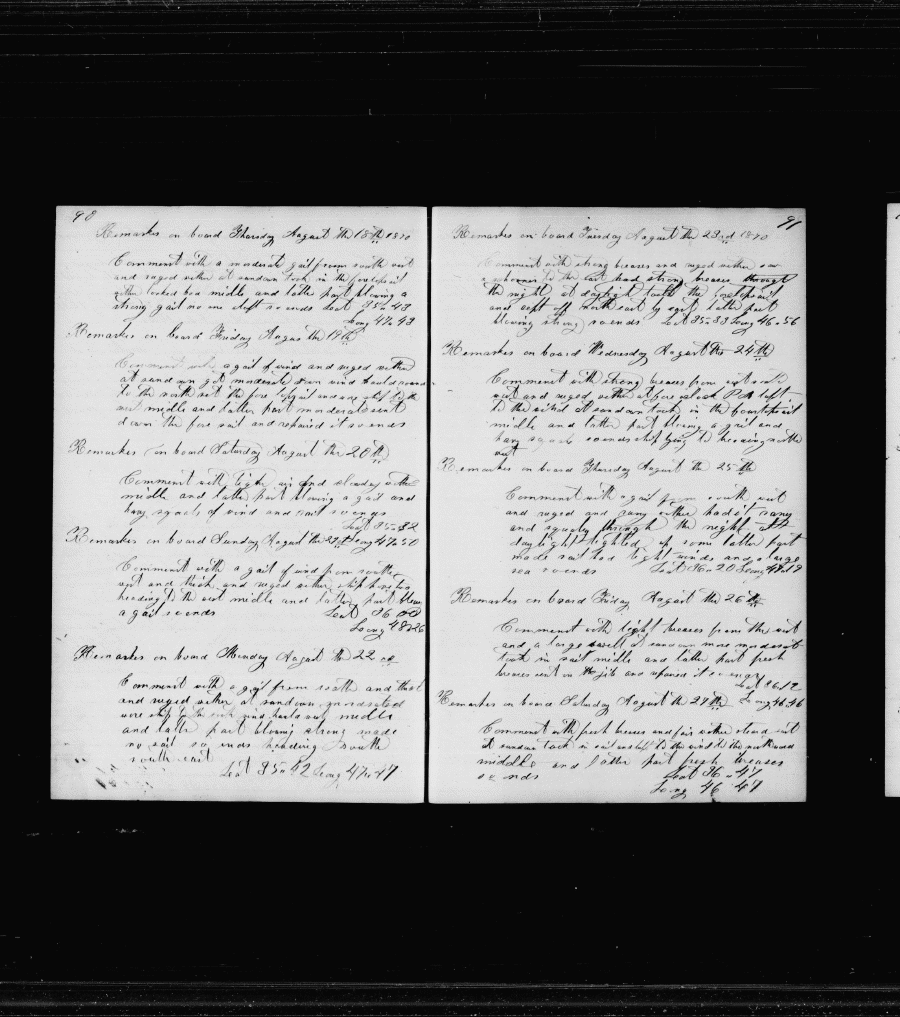 90
Remarks on board Thursday August the 18th 1870
Comment with a moderate gail from south west
and ruged wither at sandown took in the foretopsail
wither looked bad midle and latter part blowing a
strong gail no one cleft so ends Lat 35 43
Long 47 43
Remarks on board Friday Augus the 19th
Comment with a gail of wind and ruged wither
at sandown got moderate down wind
to the north set the fore topsail and wore ship to the
west midle and latter part moderat sent
down the fore sail and repaired it so ends
Remarks on board Saturday August the 20th
Comment with light air and cloudy wither
midle and latter part blowing a gail and
havy squals of wind and rain so ends
Lat 35 32
Remarks on board Sunday August the 21st Long 47 50
Comment with a gail of wind from south
west and thick and ruged wither ship hove too
heading to the west midle and latter part blowing
a gail so ends Lat 36 00
Long 48 26
Remarks on board Monday August the 22 nd
Comment with a gail from south and thick
and ruged wither at sandown moderated
wore ship to the midle
and latter part blowing strong made
no sail so ends heading south
south east
Lat 35 42 Long 47 47
91
Remarks on board Tuesday August the 23rd 1870
Comment with strong breases and ruged wither saw
a schooner to the had strong breases through
the night at daylight the foretopsail
and kept off north east by east latter part
blowing strong so ends Lat 35 33 Long 46 56
Remarks on board Wednesday August the 24th
Comment with strong breases from west south
west and ruged wither at fore oclock P M
to the at sandown took in the foretopsail
midle and latter part blowing a gail and
havy squals so ends ship lying to heading north
west
Remarks on board Thursday August the 25th
Comment with a gail from south west
and ruged and rany wither had it rany
and squaly through the night at
daylight lighted up some latter part
made sail had light winds and a large
sea so ends Lat 36 20 Long 47 19
Remarks on board Friday August the 26th
Comment with light breases from the west
and a large swell at sandown more moderate
took in sail midle and latter part fresh
breases sent in the jib and repaired it so ends
Lat 36 12
Remarks on board Saturday August the 27th Long 46 46
Comment with fresh breases and fair wither steard east
at sandown took in sail to the wind to the northward
middle and latter part fresh breases
so ends Lat 36 47
Long 46 47